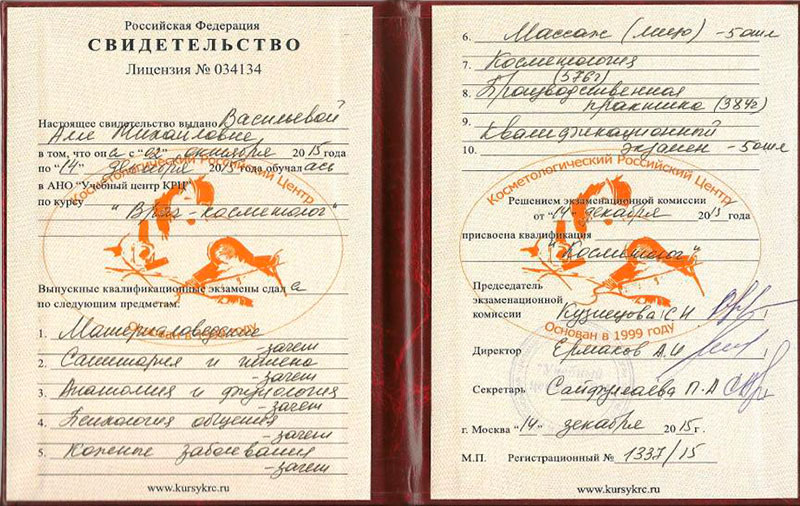 Российская Федерация
СВИДЕТЕЛЬСТВО
Лицензия № 034134
Настоящее свидетельство выдано Васильевой
Алле Михайловне
в том, что он а с "02" октября 2015 года
по "14" декабря 2015 года обучал ась
в АНО "Учебный центр КРЦ"
по курсу
"Врач-косметолог"
Косметологический Российский Центр
Основан в 1999 году
Выпускные квалификационные экзамены сдал а
по следующим предметам:
1. Материаловедение
-зачет
2. Санитария и гигиена
-зачет
3. Анатомия и физиология
-зачет
4. Психология общения
-зачет
5. Кожные заболевания
-зачет
www.kursykrc.ru
6. Массаж (лицо) -5отл
7. Косметология
(576г)
8. Производственная
практика (384г)
9. Квалификационный
10. экзамен -5отл
Косметологический Российский Центр
Решением экзаменационной комиссии
от "14" декабря 2015 года
присвоена квалификация
"Косметолог"
Председатель
экзаменационной
комиссии Кузнецова С.Н
Основан в 1999 году
Директор Ермаков А.И
Секретарь Сайфулаева П.А
г. Москва "14" декабря 2015г.
М.П. Регистрационный № 1337/15
www.kursykrc.ru